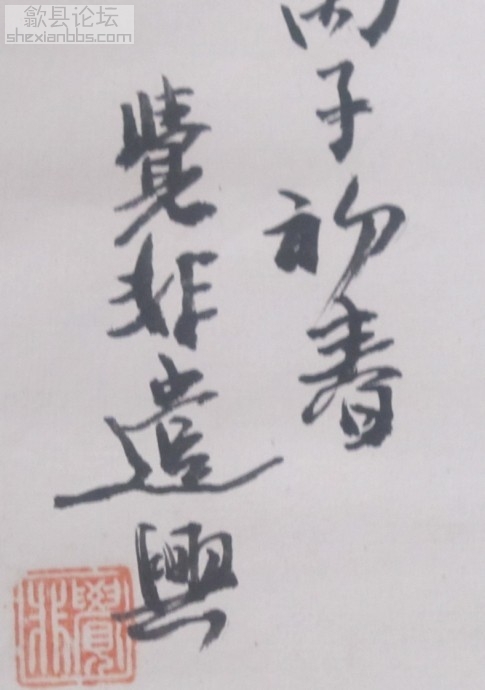 歙县论坛
shexianbbs.com
丙子初春
覺非遣興
覺非